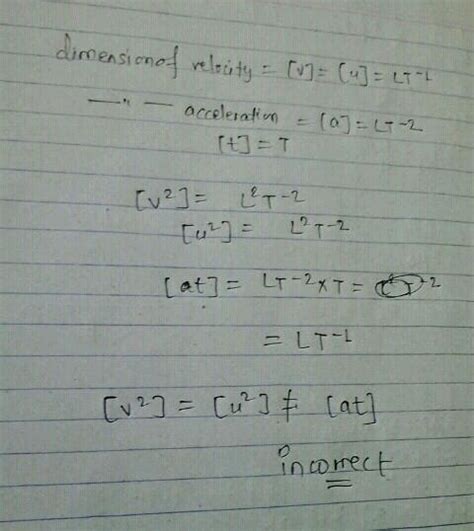 dimension of velocity = [v] = [u] = LT-1
—"— acceleration = [a] = LT-2
[t] = T
[v²] = L²T-2
[u²] = L²T-2
[at] = LT-2 × T =
= LT-1
[v²] = [u²] ≠ [at]
incorrect